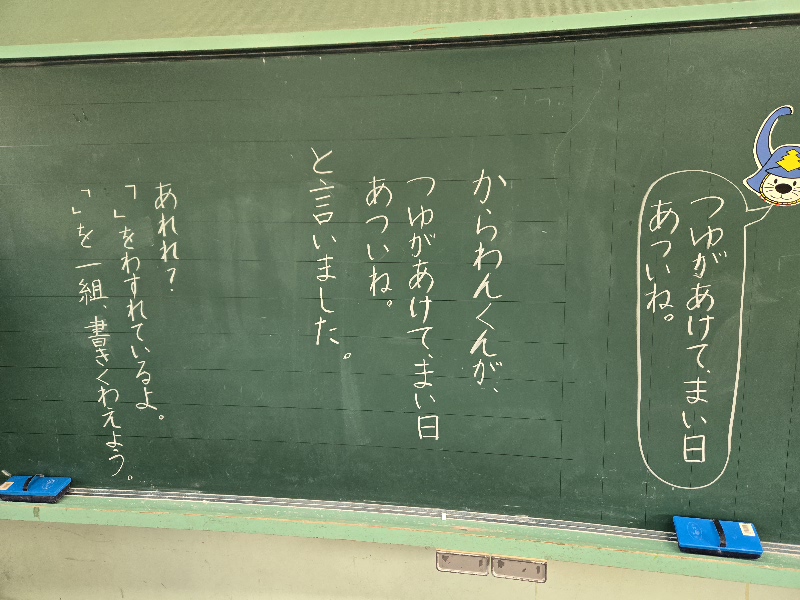 つゆがあけて、まい日
あついね。
からわんくんが、
つゆがあけて、まい日
あついね。
と言いました。
あれれ？
「」をわすれているよ。
「」を一組、書きくわえよう。